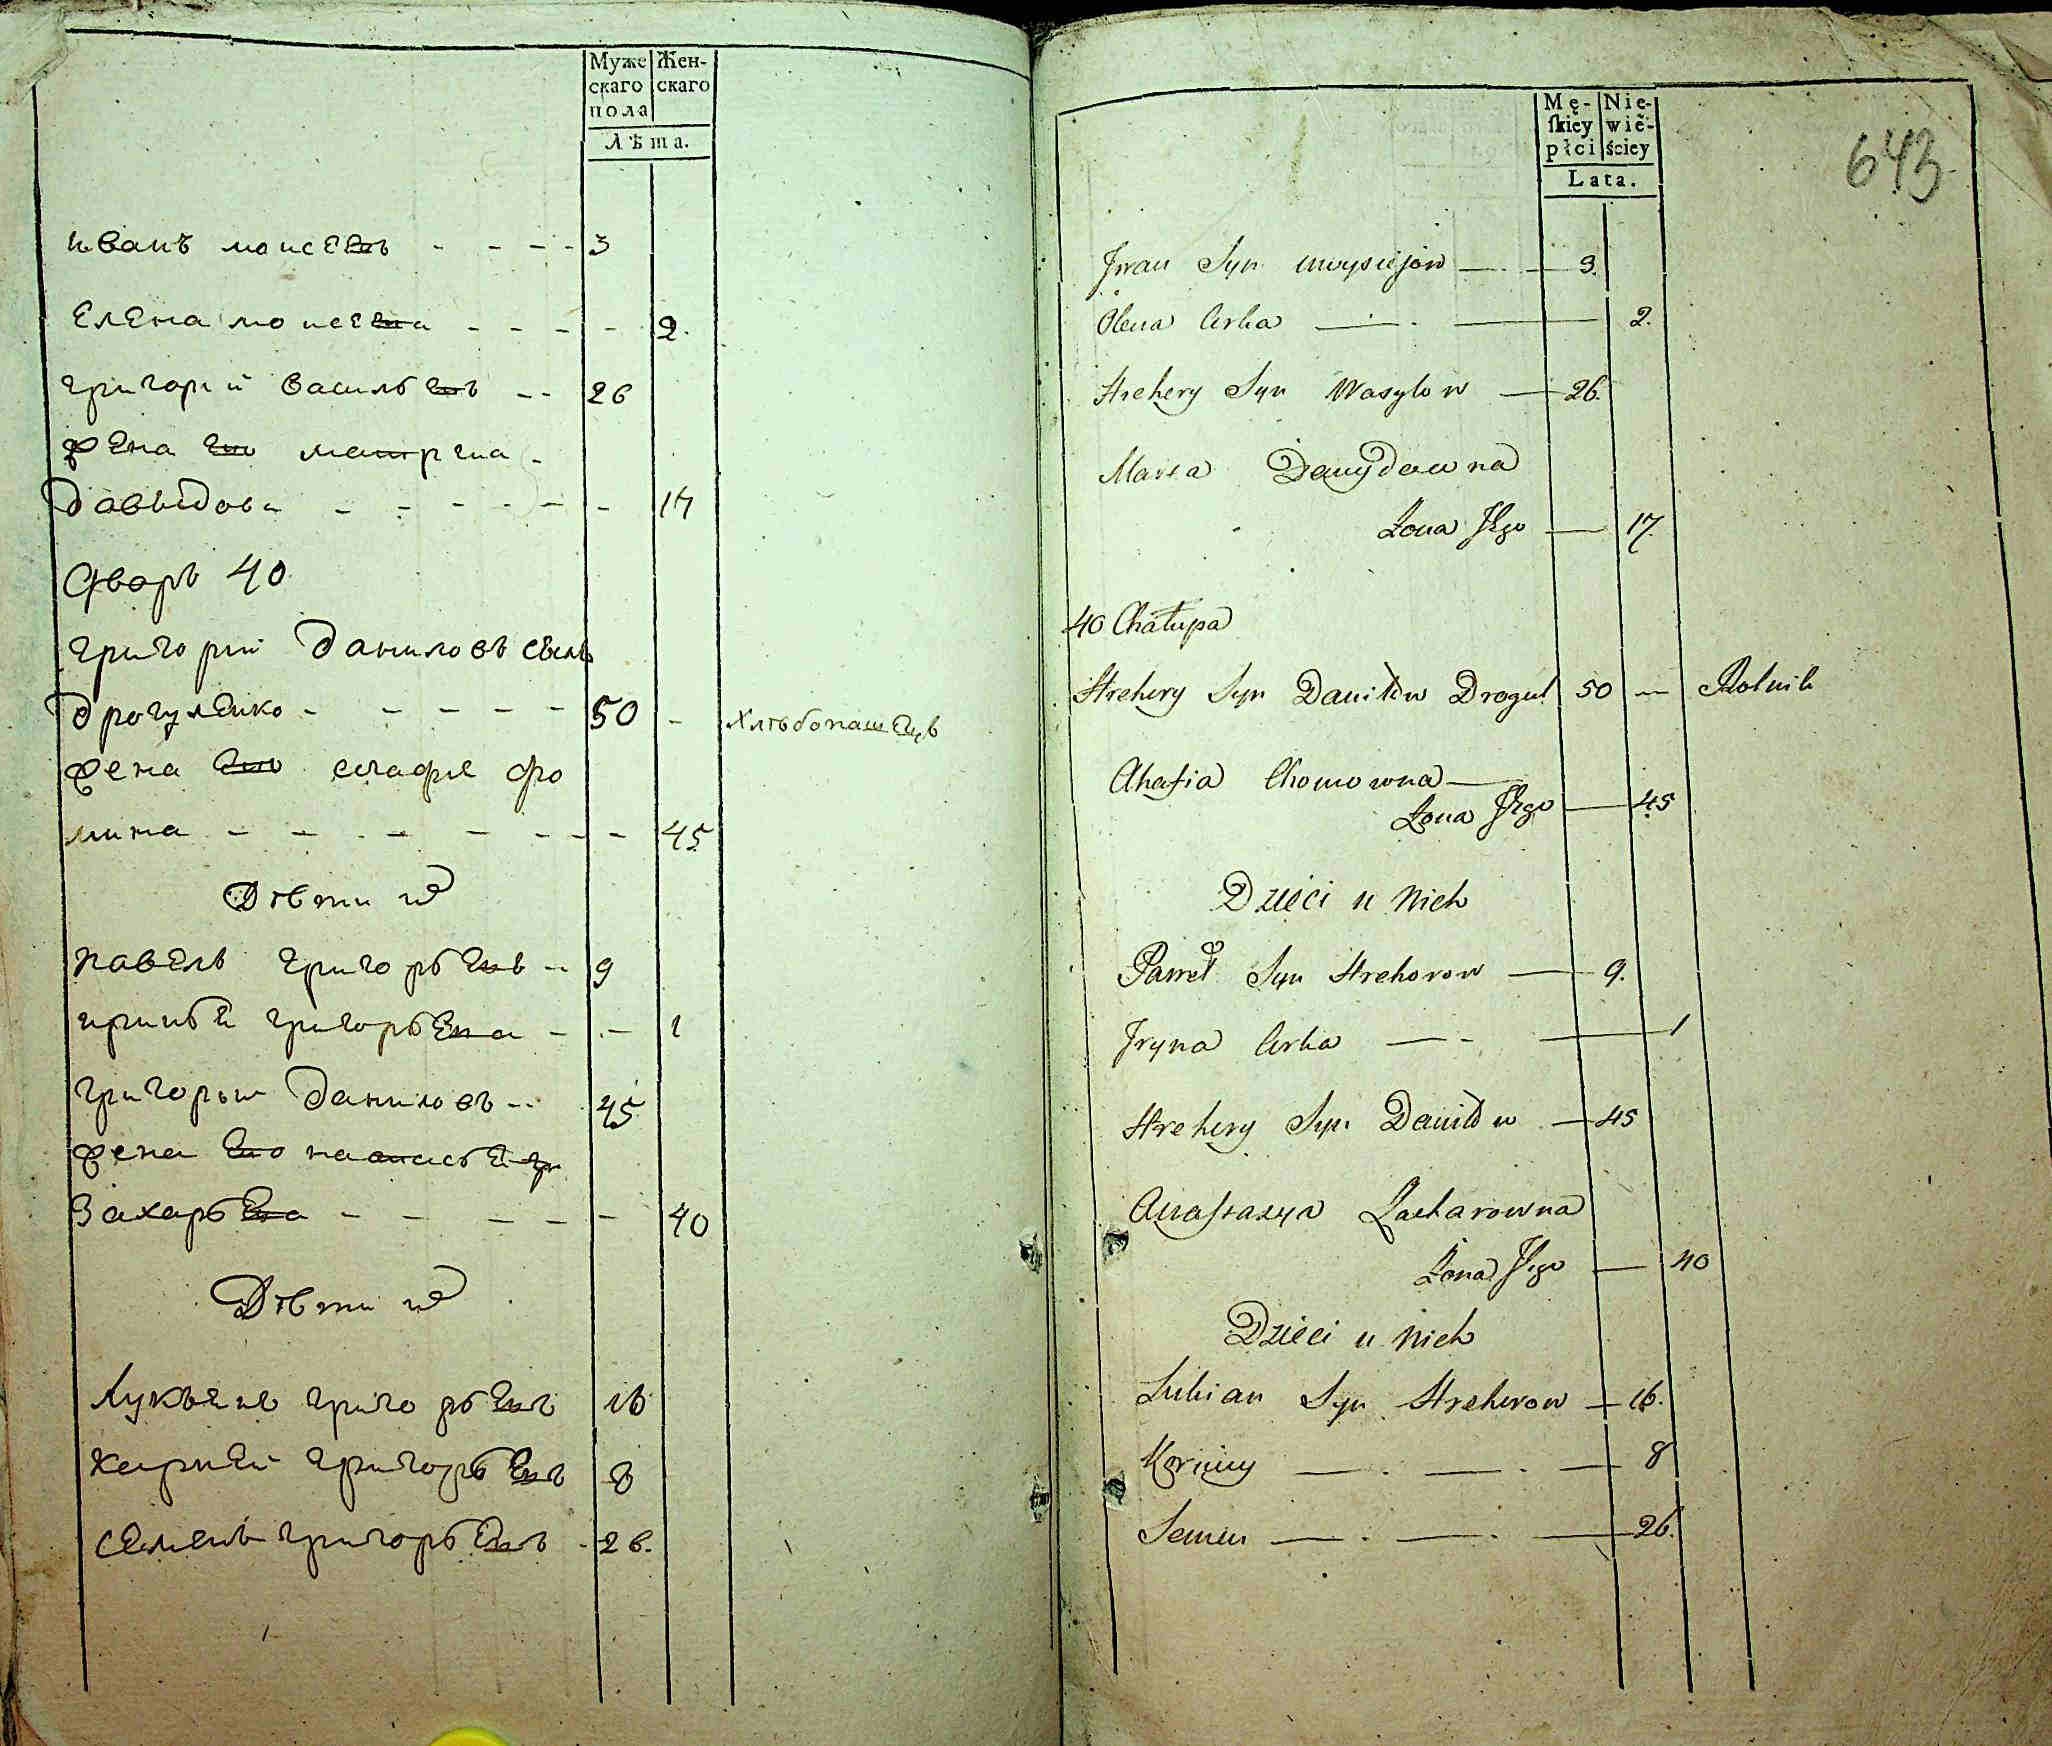 Муже
скаго
пола
Жен-
скаго
Лѣта.
иванъ моисеевъ - - - - 3
Елена моисеева - - - - 2.
григорий васильевъ - - 26
жена его матрена -
давыдова - - - - - - 17
Дворъ 40
григорий даниловъ сынъ
дрогуленко - - - - - 50 - хлѣбопашецъ
жена его агафия фо
мина - - - - - - - 45
Дѣти их
павелъ григорьевъ - 9
григорьева - - - 1
григорьи даниловъ - - 45
жена его
Захарьева - - - - - - 40
Дѣти их
Лукьянъ григорьевъ 16
григорьевъ 8
семенъ григорьевъ - 26.
Mę-
ſkiey
płci
Nie-
wie-
ściey
Lata.
643
Jwan Syn Moysiejow — - — 3.
Olena Corka — . — 2.
Hrehery Syn Wasylow — 26.
Dawydowna
Żona Jego — 17.
40 Chałupa
Hrehery Syn Daniłow Drogul 50 — Rolnik
Ahafia Chomowna —
Żona Jego — 45
Dzieci u Nich
Paweł Syn Hrehorow — 9.
Jryna Corka — - — 1
Hrehery Syn Daniłow — 45
Anastazya Zacharowna
Żona Jego — 40
Dzieci u Nich
Lukian Syn Hrehorow — 16.
Korniey — . — . — 8
Semen — . — . — 26.